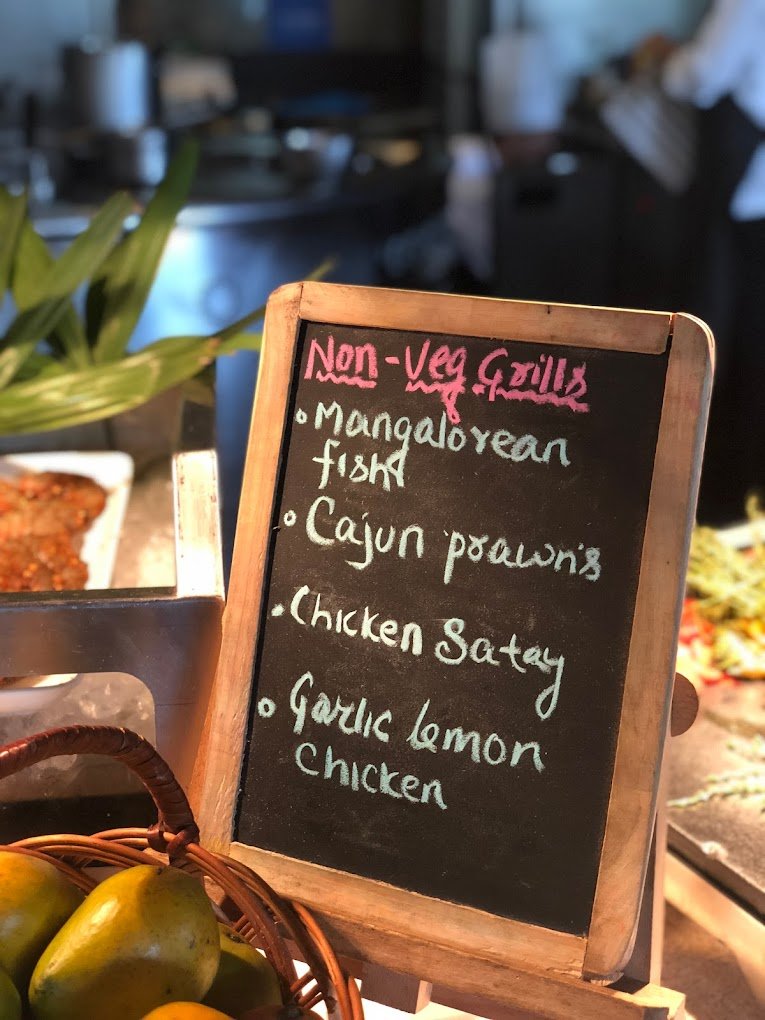 Non-Veg Grills
Mangalorean
fish
Cajun prawn's
Chicken Satay
Garlic lemon
Chicken